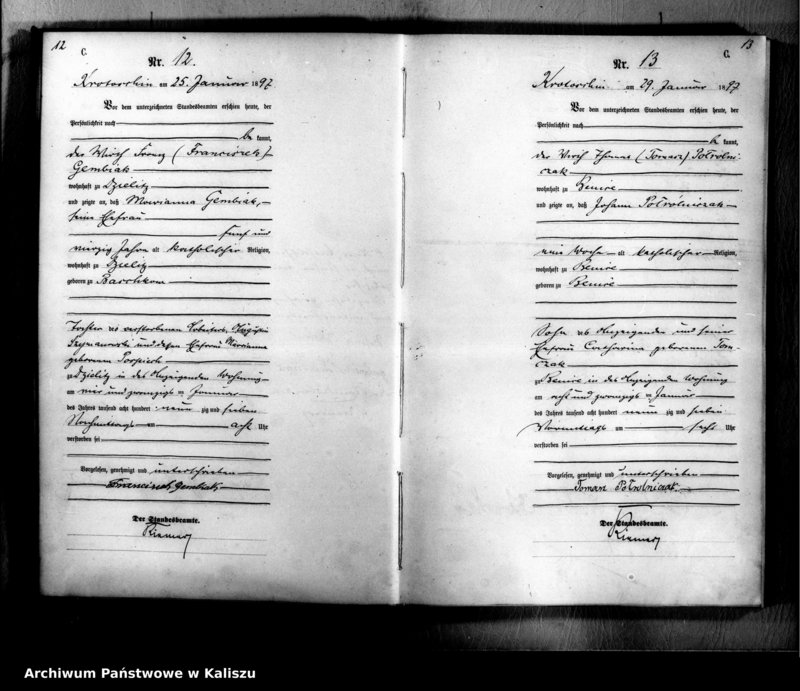 12
C.
Nr. 12.
Krotoschin am 25. Januar 1897
Vor dem unterzeichneten Standesbeamten erschien heute, der
Persönlichkeit nach
be kannt,
der Wirth Franz (Franciszek)
Gembiak
wohnhaft zu Dzielitz
und zeigte an, daß Marianna Gembiak,
seine Ehefrau
fünf und
vierzig Jahre alt katholischer Religion,
wohnhaft zu Dzielitz
geboren zu
Tochter des verstorbenen Arbeiters
und dessen Ehefrau Marianna
geborenen Pospiech
zu Dzielitz in des Anzeigenden Wohnung
am vier und zwanzigsten Januar
des Jahres tausend acht hundert neun zig und sieben
Nachmittags um acht Uhr
verstorben sei
Vorgelesen, genehmigt und unterschrieben
Franciszek Gembiak
Der Standesbeamte.
13
C.
Nr. 13
Krotoschin am 29. Januar 1897
Vor dem unterzeichneten Standesbeamten erschien heute, der
Persönlichkeit nach
be kannt,
der Wirth Thomas (Tomasz) Potrólni-
czak
wohnhaft zu Benice
und zeigte an, daß Johann Potrólniczak
eine Woche alt katholischer Religion,
wohnhaft zu Benice
geboren zu Benice
Sohn des Anzeigenden und seiner
Ehefrau Catharina geborenen Tom-
czak
zu Benice in des Anzeigenden Wohnung
am acht und zwanzigsten Januar
des Jahres tausend acht hundert neun zig und sieben
Vormittags um sechs Uhr
verstorben sei
Vorgelesen, genehmigt und unterschrieben
Tomasz Potrólniczak
Der Standesbeamte.
Archiwum Państwowe w Kaliszu